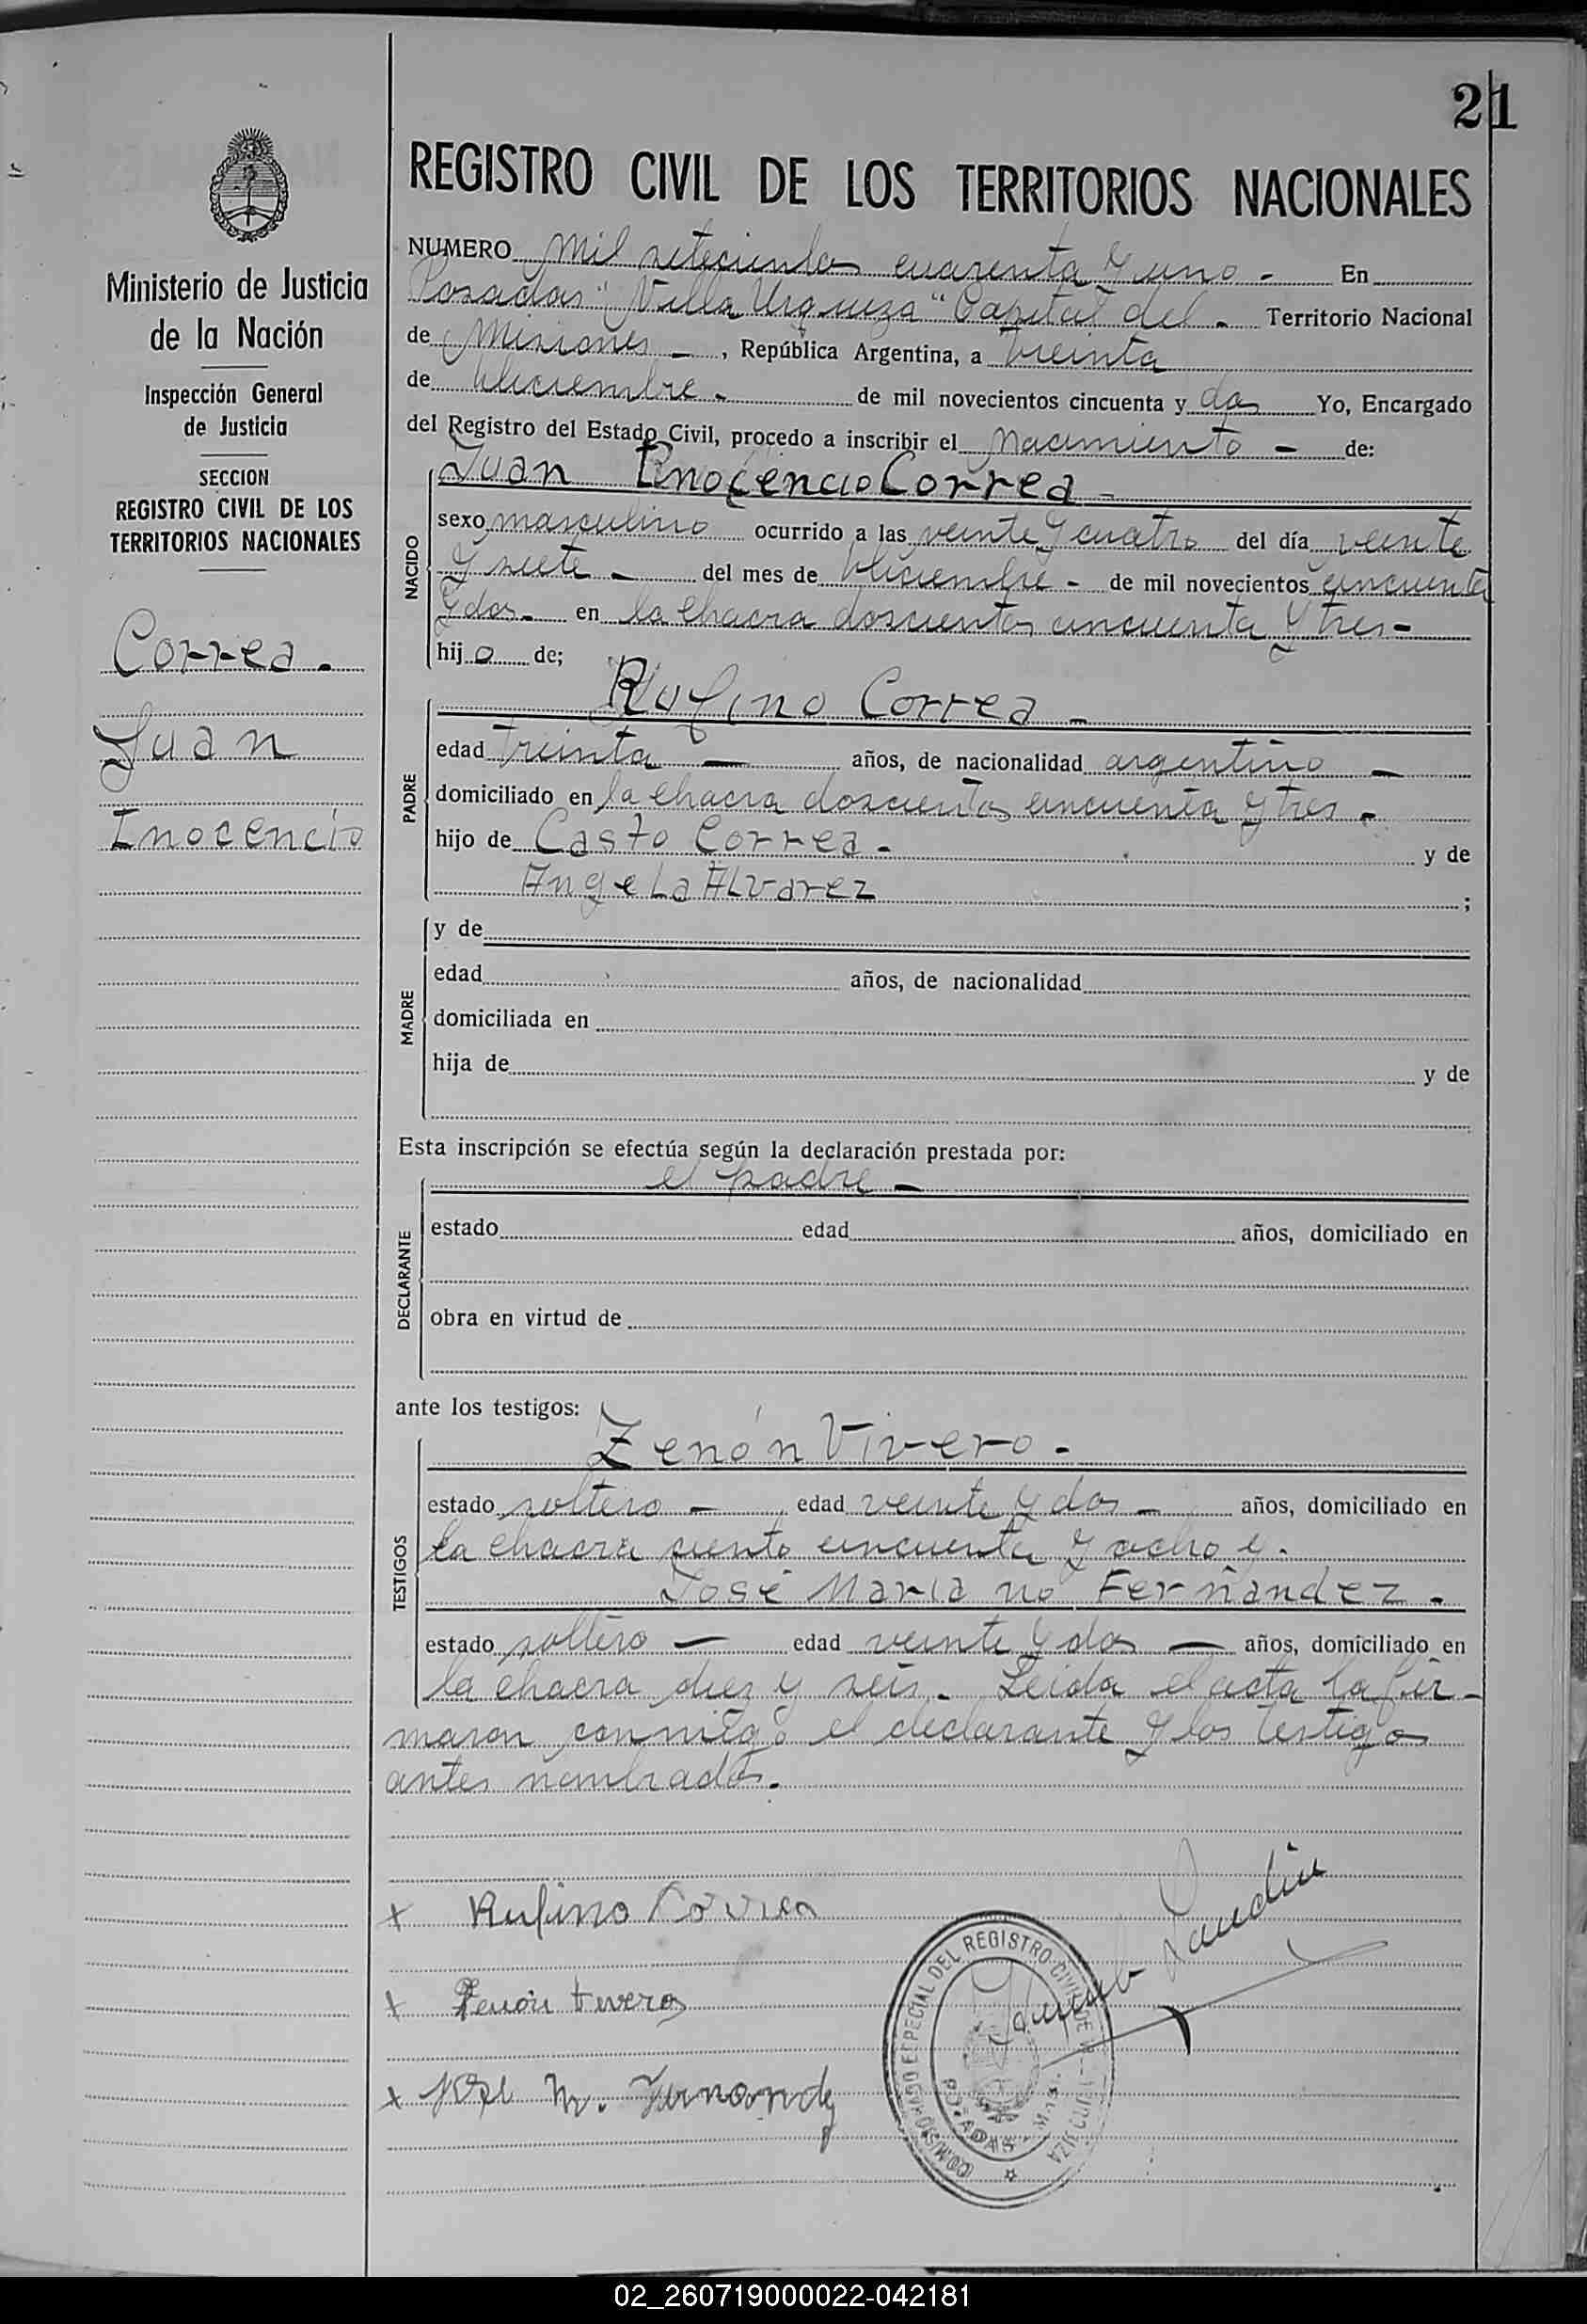 21
REGISTRO CIVIL DE LOS TERRITORIOS NACIONALES
Ministerio de Justicia
de la Nación
Inspección General
de Justicia
SECCION
REGISTRO CIVIL DE LOS
TERRITORIOS NACIONALES
Correa.
Juan
Inocencio
NUMERO Mil setecientos cuarenta y uno - En
Posadas "Villa Urquiza" Capital del - Territorio Nacional
de Misiones -, República Argentina, a treinta
de diciembre - de mil novecientos cincuenta y dos Yo, Encargado
del Registro del Estado Civil, procedo a inscribir el Nacimiento - de:
Juan Inocencio Correa -
NACIDO
sexo masculino ocurrido a las veinte y cuatro del día veinte
y siete - del mes de diciembre - de mil novecientos cincuenta
y dos - en la chacra doscientos cincuenta y tres -
hijo de;
PADRE
Rufino Correa -
edad treinta - años, de nacionalidad argentino -
domiciliado en la chacra doscientos cincuenta y tres -
hijo de Casto Correa - y de
Angela Alvarez ;
MADRE
y de
edad años, de nacionalidad
domiciliada en
hija de y de
Esta inscripción se efectúa según la declaración prestada por:
DECLARANTE
el padre -
estado edad años, domiciliado en
obra en virtud de
ante los testigos:
TESTIGOS
Zenón Vivero -
estado soltero - edad veinte y dos - años, domiciliado en
la chacra ciento cincuenta y ocho y.
José Maria no Fernandez -
estado soltero - edad veinte y dos - años, domiciliado en
la chacra diez y seis. Leida el acta la fir-
maron conmigo el declarante y los testigos
antes nombrados.
+ Rufino Correa
+ Zenón Vivero
+ José M. Fernandez
COMISIONADO ESPECIAL DEL REGISTRO CIVIL DE VILLA URQUIZA
POSADAS - Mnes.
02_260719000022-042181